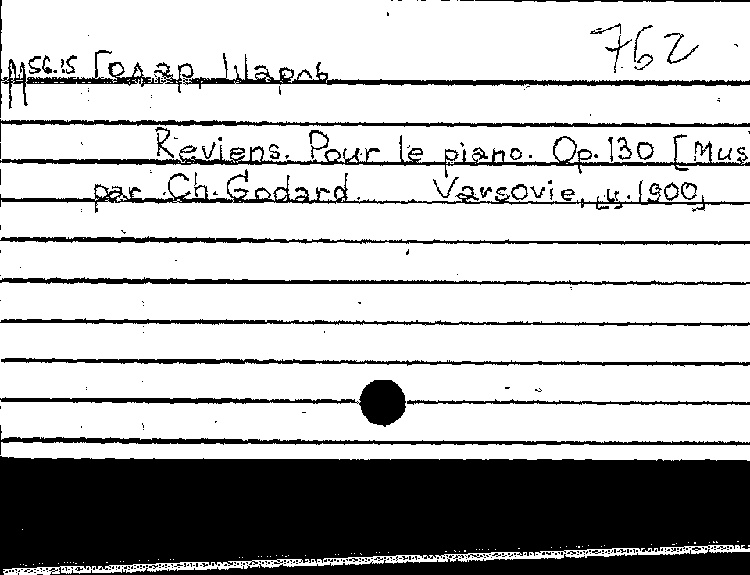 762
М56.15 Годар, Шарль
Reviens. Pour le piano. Op. 130 [Mus
par Ch. Godard. Varsovie, [ц. 1900]